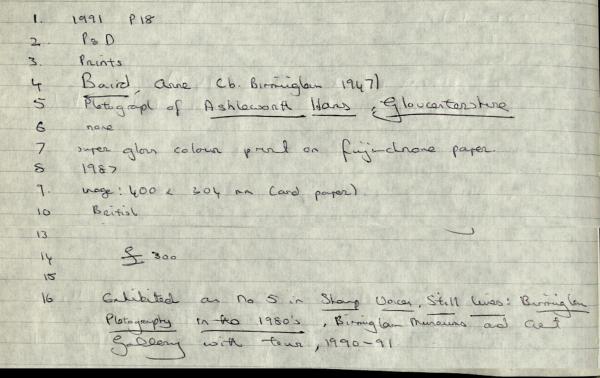 1. 1991 P18
2 P & D
3. Prints
4 Baird, Anne (b. Birmingham 1947)
5 Photograph of Ashleworth Hams, Gloucestershire
6 none
7 super gloss colour print on fujichrome paper.
8 1987
9. image: 400 x 304 mm (and paper)
10 British
13
14 £300
15
16 Exhibited as No 5 in Sharp Voices, Still Lives: Birmingham
Photography in the 1980's, Birmingham Museums and Art
Gallery with tour, 1990-91